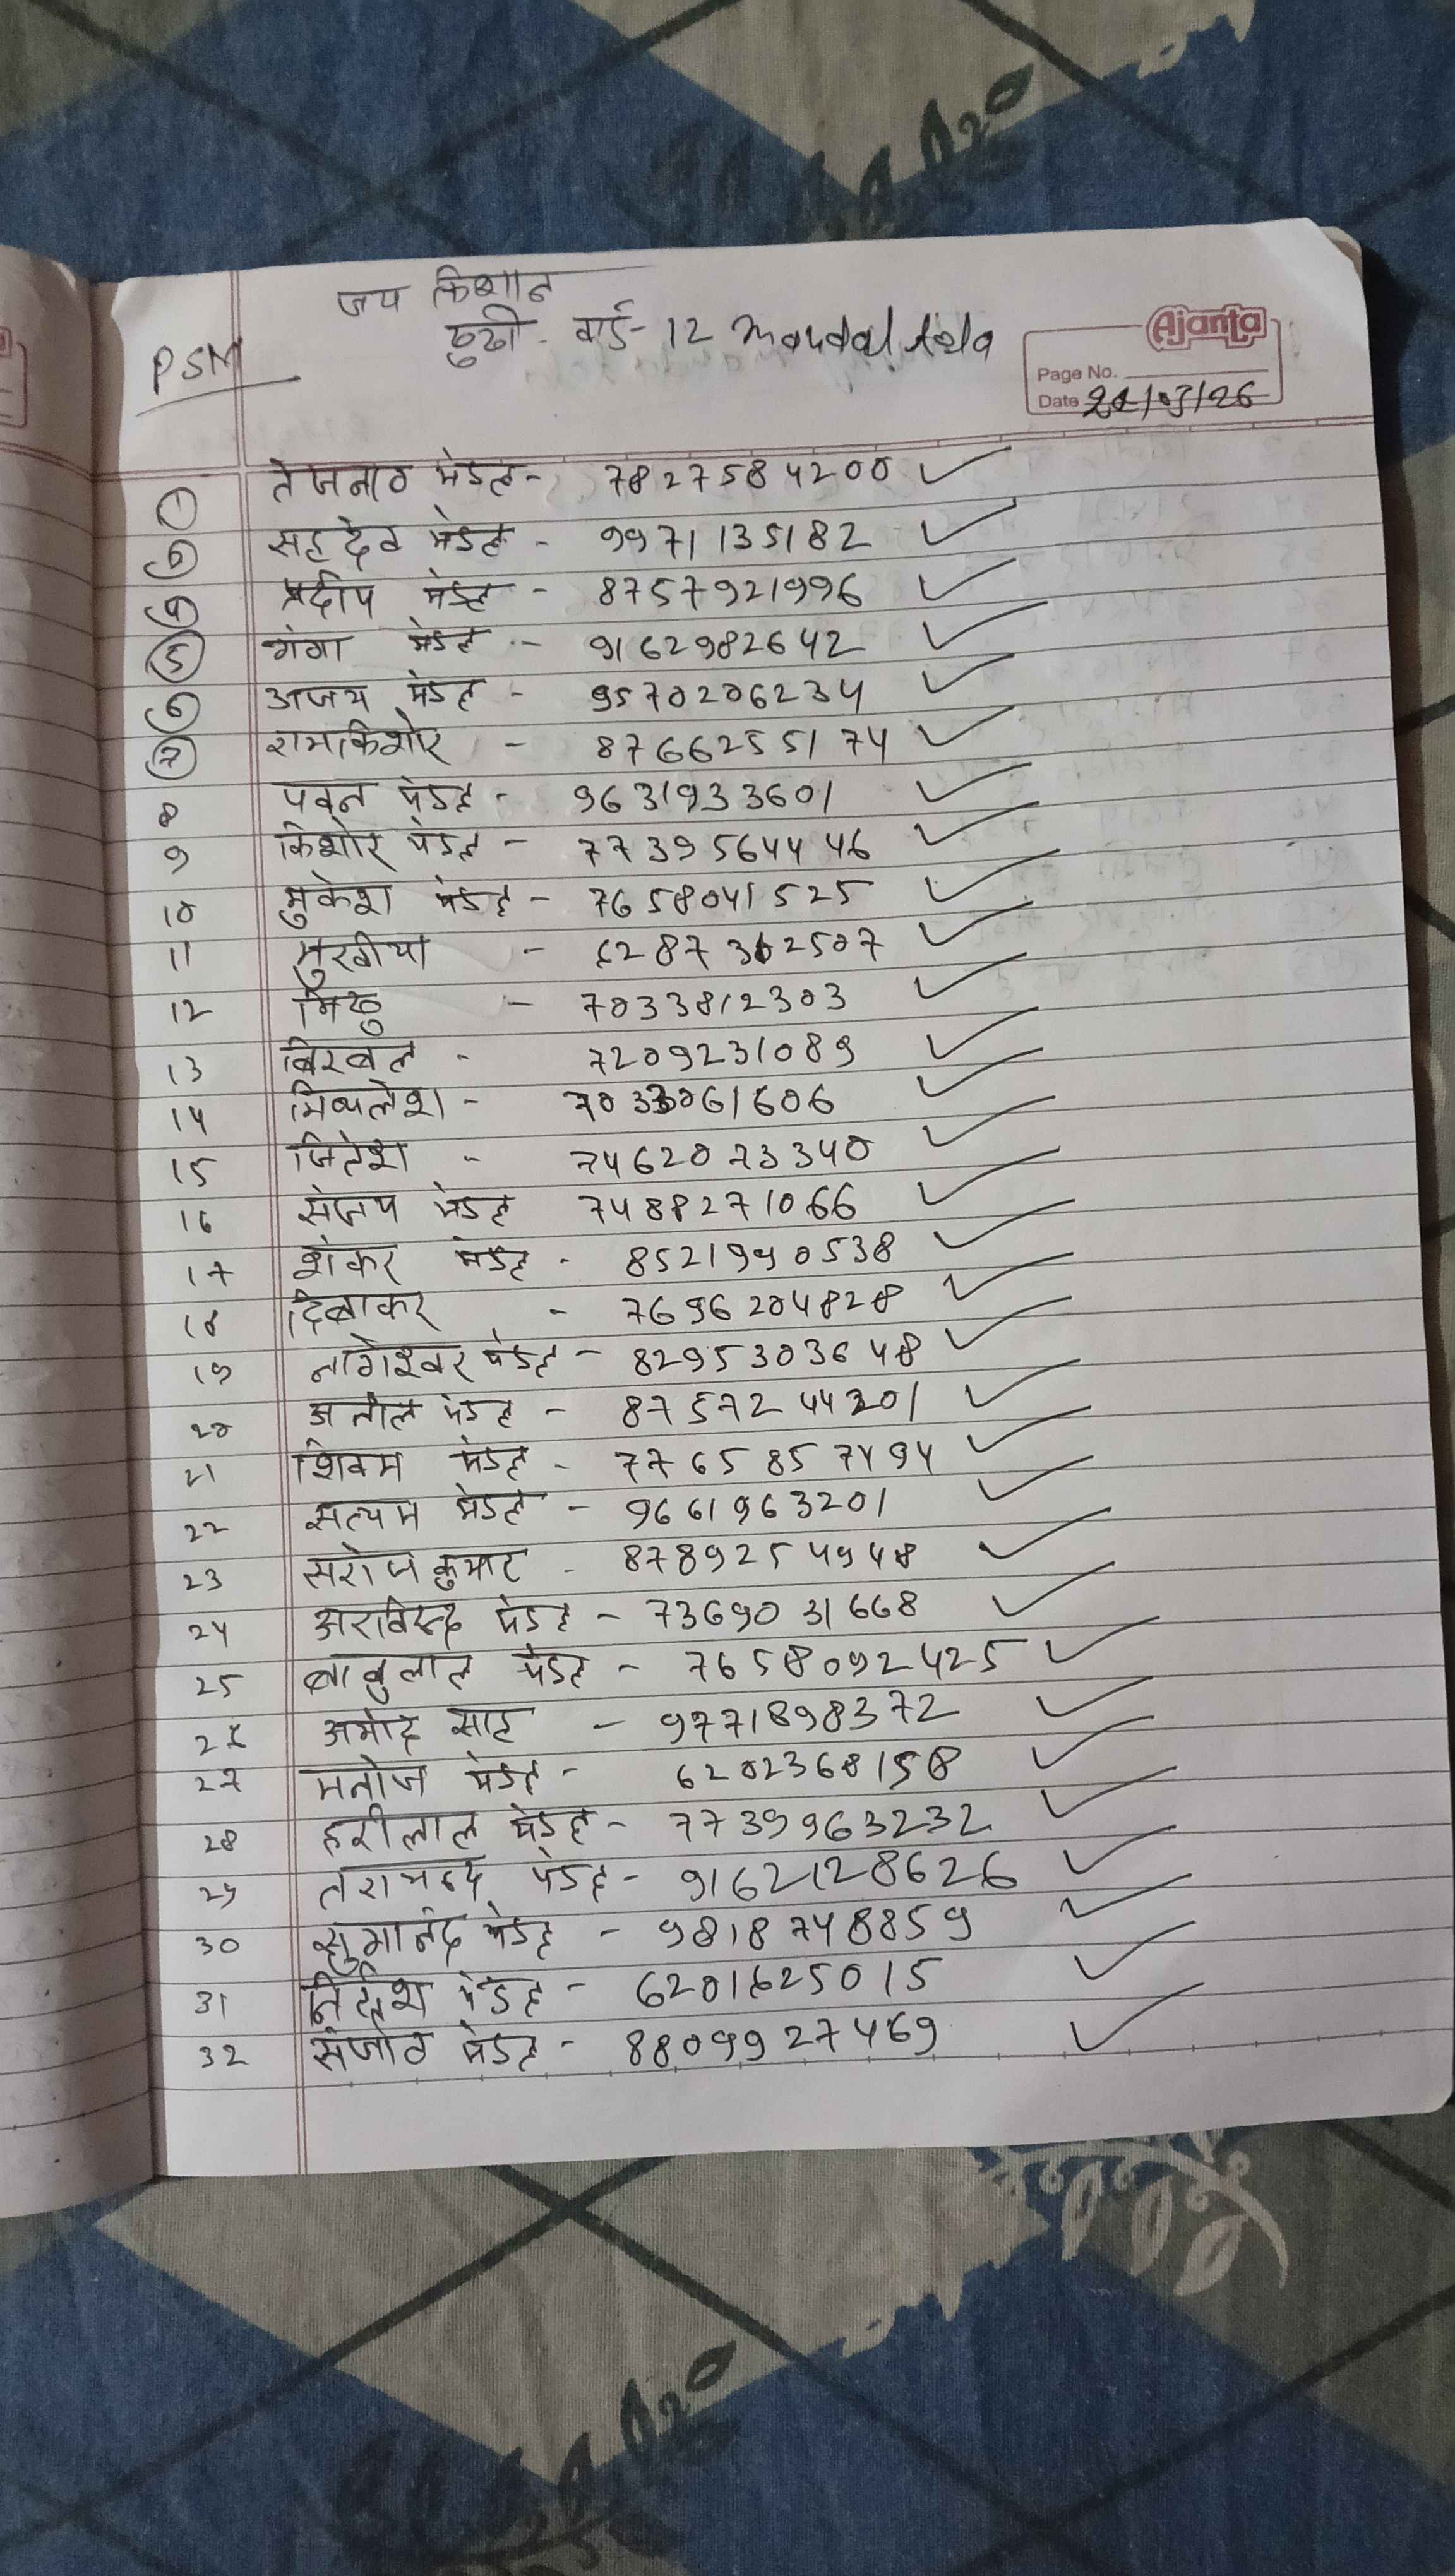 जय किशान
PSM
वार्ड- 12 Mandal tola
Ajanta
Page No.
Date 21/03/26
① तेजनाठ मंडल - 7827584200 ✓
सहदेव मंडल - 9971135182 ✓
④ प्रदीप मंडल - 8757921996 ✓
⑤ गंगा मंडल - 9162982642 ✓
⑥ अजय मंडल - 9570206234 ✓
⑦ रामकिशोर - 8766255174 ✓
8 पवन मंडल - 9631933601 ✓
9 किशोर मंडल - 7739564446 ✓
10 मुकेश मंडल - 7658041525 ✓
11 मुखीया - ✓
12 मिठु - 7033812303 ✓
13 बिरबल - 7209231089 ✓
14 मिथलेश - 7033061606 ✓
15 जितेश - 7462073340 ✓
16 संजय मंडल 7488271066 ✓
17 शंकर मंडल - 8521990538 ✓
18 दिबाकर - 7696204828 ✓
19 नागेश्वर मंडल - 8295303648 ✓
20 अनील मंडल - 8757244201 ✓
21 शिवम मंडल - 7765857494 ✓
22 सत्यम मंडल - 9661963201 ✓
23 सरोज कुमार - 8789254948 ✓
24 अरविन्द मंडल - 7369031668 ✓
25 बाबुलाल मंडल - 7658092425 ✓
26 अमोद साह - 9771898372 ✓
27 मनोज मंडल - 6202368158 ✓
28 हरीलाल मंडल - 7739963232 ✓
29 तराचन्द मंडल - 9162128626 ✓
30 सुमानंद मंडल - 9818748859 ✓
31 मंडल - 6201625015 ✓
32 संजीत मंडल - 8809927469 ✓